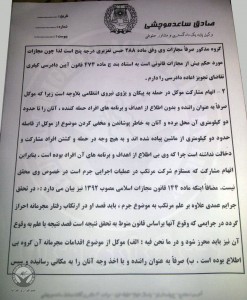 صادق ساعدموچشی
وکیل پایه یک دادگستری و مشاور حقوقی
گروه مذکور صرفاً مجازات وی وفق ماده ۲۸۸ حبس تعزیری درجه پنج است لذا چون مجازات
مورد حکم بیش از مجازات قانونی است به استناد بند چ ماده ۴۷۴ قانون آیین دادرسی کیفری
تقاضای تجویز اعاده دادرسی را دارم.
۲- اتهام مشارکت موکل در حمله به پیکان و پژوی نیروی انتظامی بلاوجه است زیرا که موکل
صرفاً به عنوان راننده و بدون اطلاع از اهداف و برنامه های افراد حمله کننده ، آنان را تا حدود
دو کیلومتری آن محل برده و آنان به خاطر پوشاندن و مخفی کردن موضوع از موکل، از حدود
دو کیلومتری از ماشین پیاده شده اند و به هیچ وجه در حمله و کشتن افراد مشارکت و
دخالت نداشته است چرا که وی بی اطلاع از اهداف و برنامه های آن افراد بوده است، بنابراین
اتهام مشارکت که مستلزم شرکت مرتکب در عملیات اجرایی جرم است در خصوص وی محقق
نیست. مضافاً اینکه ماده ۱۴۴ قانون مجازات اسلامی مصوب ۱۳۹۲ نیز بیان می دارد: « در تحقق
جرایم عمدی علاوه بر علم مرتکب به موضوع جرم ، باید قصد او در ارتکاب رفتار مجرمانه احراز
گردد در جرایمی که وقوع آنها براساس قانون منوط به تحقق نتیجه است قصد نتیجه یا علم به وقوع
آن نیز باید محرز شود و در ما نحن فیه : الف) موکل از موضوع اقدامات مجرمانه آن گروه بی
اطلاع بوده است ، ب) صرفاً به عنوان راننده و با اخذ وجه آنان را به مکانی رسانیده و سپس